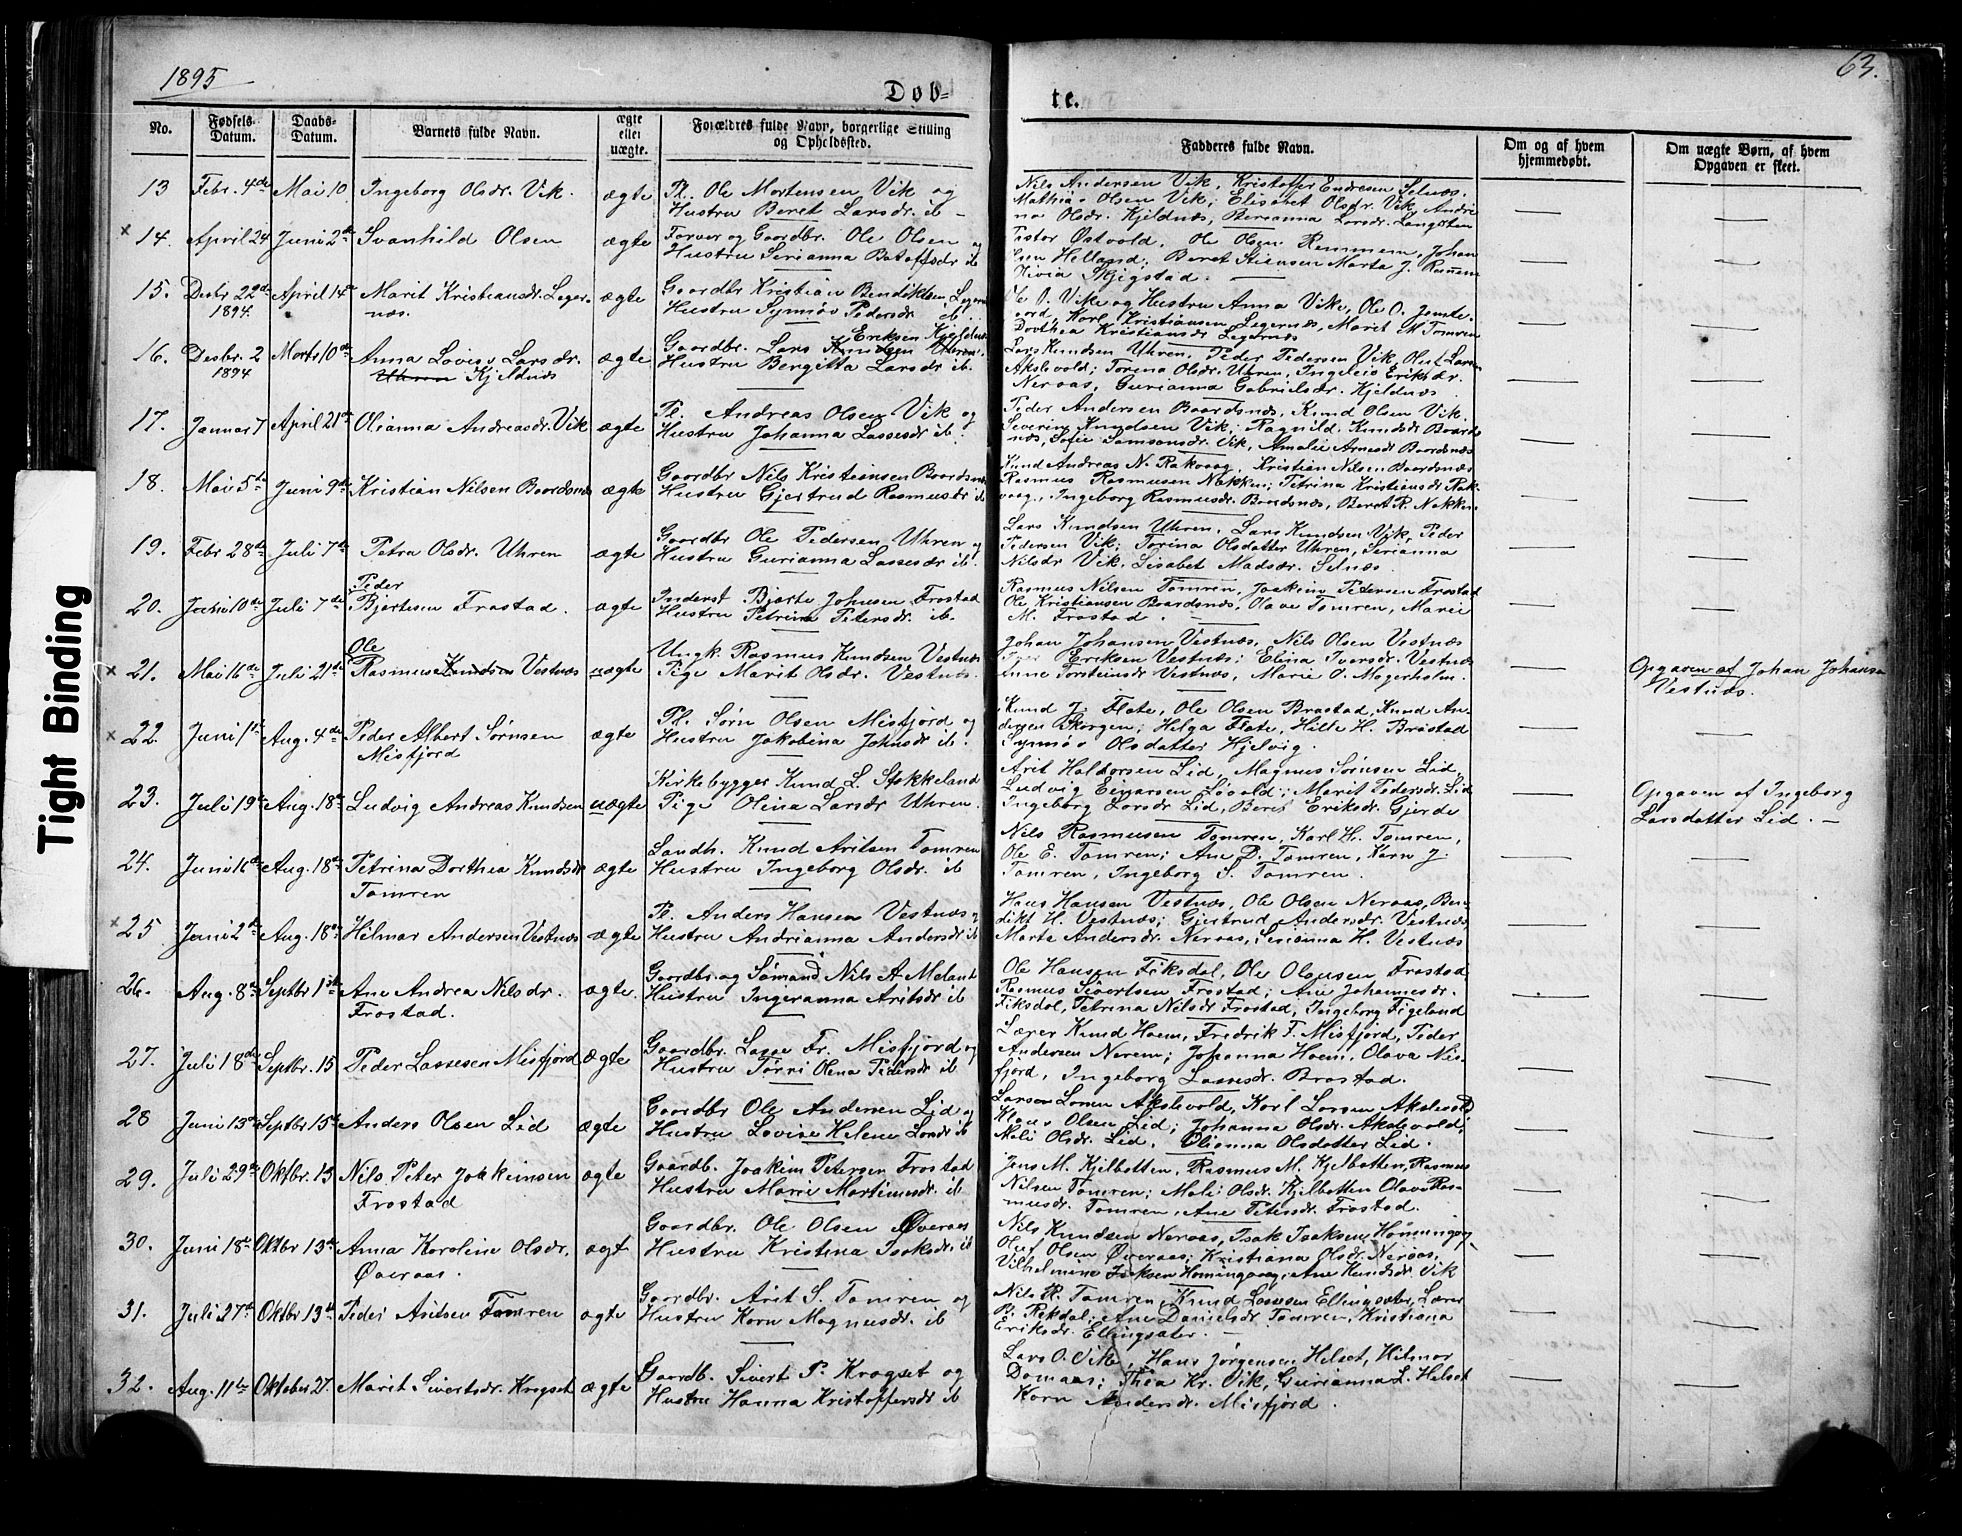 1895
63.
Døb-
te.
No.
Fødsels-Datum.
Daabs-Datum.
Barnets fulde Navn.
ægte eller uægte.
Forældres fulde Navn, borgerlige Stilling og Opholdssted.
Fadderes fulde Navn.
Om og af hvem hjemmedøbt.
Om uægte Børn, af hvem Opgaven er skeet.
13 Febr. 4de Mai 10 Ingeborg Olsdr. Vik. ægte Pl. Ole Mortensen Vik og
Hustru Beret Larsdr. ib
Nils Andersen Vik, Kristoffer Endresen Selnæs.
Mathias Olsen Vik; Elisabet Olsdr. Vik, Andri
na Olsdr. Kjeldnæs, Berianna Larsdr. Langsten
× 14. April 24 Juni 2de Svanhild Olsen ægte Farver og Gaardbr. Ole Olsen og
Hustru Serianna Botolfsdr ib
Pastor Østvold, Ole Olsen Remmem, Johan
Helland, Beret Stensen Marta J.
Olivia Skjegstad.
15. Desbr 22de 1894. April 14de Marit Kristiansdr. Leger-
næs. ægte Gaardbr Kristian Bendiktsen Legernæs
Hustru Synnøv Pedersdr ib.
Ole O. Vike og Hustru Anna Vike, Ole O. Jemte-
gard, Karl Kristiansen Legernæs, Marit M Tomren
Dorthea Kristiansdr Legernæs
16. Desbr. 2 1894 Marts 10de Anna Lovise Larsdr.
Uhren Kjeldnæs ægte Gaardbr. Lars Knudsen Uhren, Eriksen Kjeldnæs
Hustru Bergitta Larsdr ib.
Lars Knudsen Uhren, Peder Pedersen Vik, Oluf Larsen
Akslevold; Torina Olsdr. Uhren, Ingeleiv Eriksdr.
Neraas, Gurianna Gabrielsdr. Kjeldnæs
17. Januar 7 April 21de Olianna Andreasdr. Vik ægte Pl. Andreas Olsen Vik og
Hustru Johanna Lassesdr ib.
Peder Andersen Baardsnæs, Knud Olsen Vik.
Severin Knudsen Vik; Ragnild Knudsdr Baards-
næs, Sofie Samsonsdr. Vik, Amalie Arnesdr Baardsnæs
18. Mai 5te Juni 9de Kristian Nilsen Baardsnæs ægte Gaardbr Nils Kristiansen Baardsnæs
Hustru Gjertrud Rasmusdr ib
Knud Andreas N. Rakvaag, Kristian Nilsen Baardsnæs
Rasmus Rasmussen Nakken; Petrina Kristiansdr Rak-
vaag, Ingeborg Rasmusdr. Baardsnæs, Beret R. Nakken
19. Febr 28de Juli 7de Petra Olsdr. Uhren ægte Gaardbr Ole Pedersen Uhren og
Hustru Gurianna Lassesdr ib.
Lars Knudsen Uhren, Lars Knudsen Vik, Peder
Pedersen Vik; Torina Olsdatter Uhren, Serianna
Nilsdr Vik, Lisabet Madsdr. Selnæs
20. 10de Juli 7de Peder
Bjertesen Frostad. ægte Inderst Bjarte Johnsen Frostad
Hustru Petrina Petersdr. ib.
Rasmus Nilsen Tomren, Joakim Petersen Frostad
Ole Kristiansen Baardsnæs, Olave Tomren, Marie
M. Frostad.
× 21. Mai 16de Juli 21de Ole
Rasmus Knudsen Vestnæs uægte Ungk. Rasmus Knudsen Vestnæs
Pige Marit Olsdr. Vestnæs.
Johan Johansen Vestnæs, Nils Olsen Vestnæs
Eriksen Vestnæs; Elina Iversdr. Vestnæs
Anne Torsteinsdr Vestnæs, Marie O. Magerholm.
Opgaven af Johan Johansen
Vestnæs.
× 22. Juni 1ste Aug. 4de Peder Albert Sørnsen
Misfjord ægte Pl. Sørn Olsen Misfjord og
Hustru Jakobina Johnsdr ib.
Knud J. Flate, Ole Olsen Brastad, Knud An-
dersen Skorgen; Helga Flate, Hille H. Brastad
Synnøv Olsdatter Hjelvig.
23. Juli 19de Aug. 18de Ludvig Andreas Knudsen uægte Kirkebygger Knud L. Stokkeland
Pige Olina Larsdr Uhren.
Arit Haldorsen Lid, Magnus Sørnsen Lid,
Ludvig Einarsen Løvold; Marit Pedersdr. Lid
Ingeborg Larsdr. Lid, Beret Eriksdr. Gjerde
Opgaven af Ingeborg
Larsdatter Lid. —
24. Juni 16de Aug. 18de Petrina Dorthea Knudsdr
Tomren ægte Landh. Knud Aritsen Tomren
Hustru Ingeborg Olsdr. ib
Nils Rasmusen Tomren, Karl H. Tomren,
Ole E. Tomren; Ane D. Tomren, Karn J.
Tomren, Ingeborg S. Tomren.
× 25 Juni 2de Aug. 18de Hilmar Andersen Vestnæs ægte Pl. Anders Hansen Vestnæs og
Hustru Andrianna Andersdr ib
Hans Hansen Vestnæs, Ole Olsen Neraas, Ben-
dikt H. Vestnæs; Gjertrud Andersdr. Vestnæs,
Marta Andersdr. Neraas, Serianna H. Vestnæs
26. Aug. 8de Septbr 1ste Ane Andrea Nilsdr.
Frostad. ægte. Gaardbr. og Sømand Nils A Meland
Hustru Ingeranna Aritsdr ib
Ole Hansen Fiksdal, Ole Olausen Frostad
Rasmus Sivertsen Frostad; Ane Johannesdr.
Fiksdal, Petrina Nilsdr Frostad, Ingeborg Figeland
27. Juli 18de Septbr. 15 Peder Lassesen Misfjord ægte Gaardbr. Lasse Fr. Misfjord og
Hustru Torri Olena Pedersdr ib
Lærer Knud Hoem, Fredrik F. Misfjord, Peder
Andersen Nerem; Johanna Hoem, Olava Mis-
fjord, Ingeborg Lassesdr. Brastad.
28 Juni 13de Septbr 15de Anders Olsen Lid ægte Gaardbr Ole Andersen Lid og
Hustru Lovise Helene Larsdr ib
Larsen Akslevold, Karl Larsen Akslevold
Klaus Olsen Lid; Johanna Olsdr. Akslevold,
Mali Olsdr. Lid, Olianna Olsdatter Lid.
29. Juli 29de Oktbr. 13 Nils Peter Joakimsen
Frostad ægte Gaardb. Joakim Petersen Frostad
Hustru Marie Martinusdr. ib
Jens M. Kjelbotten, Rasmus M. Kjelbotten, Rasmus
Nilsen Tomren; Mali Olsdr. Kjelbotten Olava Ras-
musdr. Tomren, Ane Petersdr. Frostad.
30. Juni 18de Oktbr 13de Anna Karoline Olsdr.
Øveraas. ægte Gaardbr. Ole Olsen Øveraas
Hustru Kristina Isaksdr. ib
Nils Knudsen Neraas, Isak Isaksen Homingvaag
Oluf Olsen Øveraas; Kristiana Olsdr. Neraas,
Vilhelmine Isaksen Homingvaag, Ane Knudsdr. Vik
31. Juli 27de Oktbr 13de Peder Aritsen Tomren ægte Gaardbr. Arit S. Tomren og
Hustru Karn Magnusdr. ib
Nils R. Tomren, Knud Lassesen Ellingsæter, Lærer
P. Rekdal; Ane Danielsdr Tomren, Kristiana
Eriksdr. Ellingsæter. —
32. Aug. 11te Oktober 27. Marit Sivertsdr. Krogset ægte Gaardb. Sivert P. Krogset og
Hustru Hanna Kristoffersdr ib
Lars O. Vik, Hans Jørgensen Helset, Hilmar
Domaas; Thea Kr. Vik, Gurianna L. Helset
Karn Andersdr. Misfjord.
Tight Binding